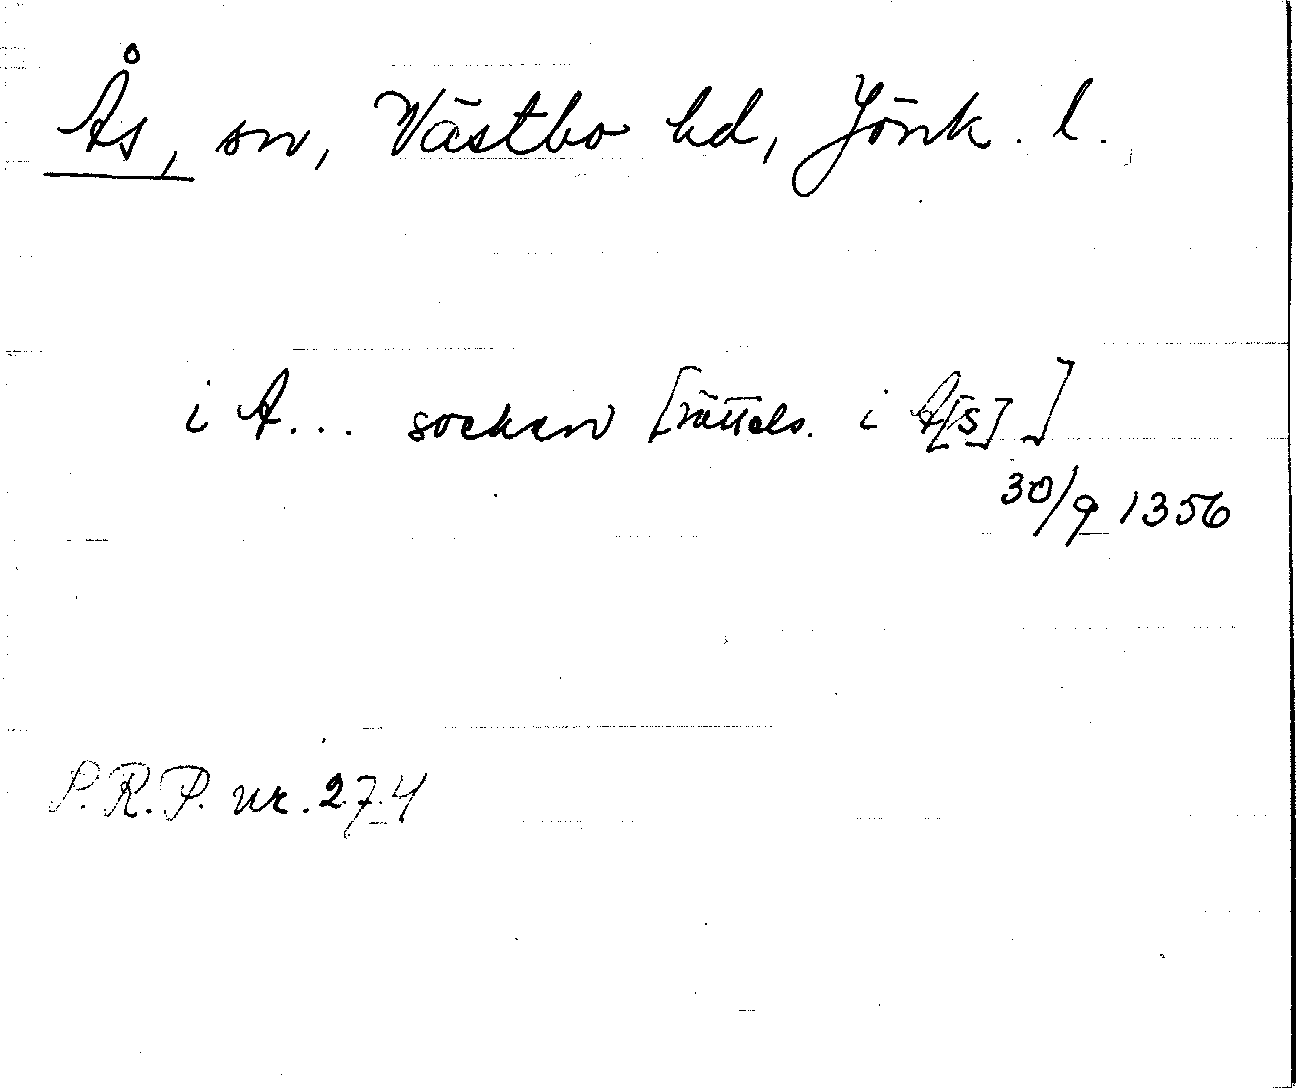 Ås, sn, Västbo hd, Jönk. l.
i A... socken [rättels. i A[s]]
30/9 1356
S.R.P. nr. 274